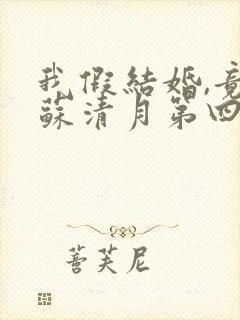 我假結婚,竟
蘇清月第四
蒈芙尼